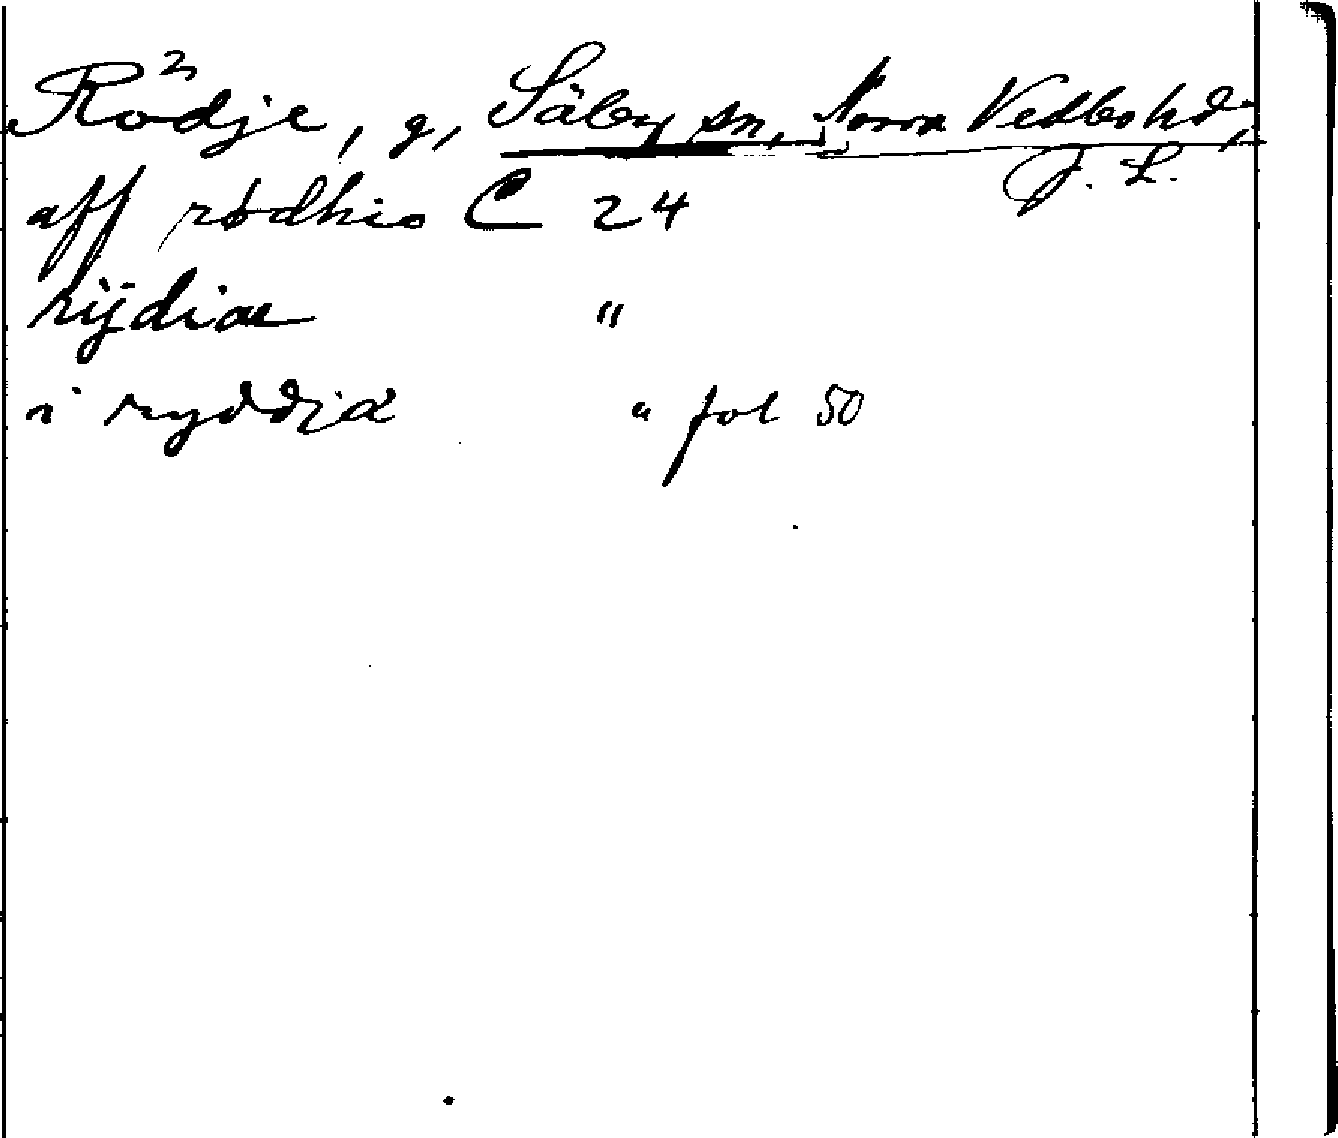 Rödje, g, Säby sn, Norra Vedbo hd,
J. L.
aff rødhio C 24
rÿdiæ "
i ryddia " fol 50